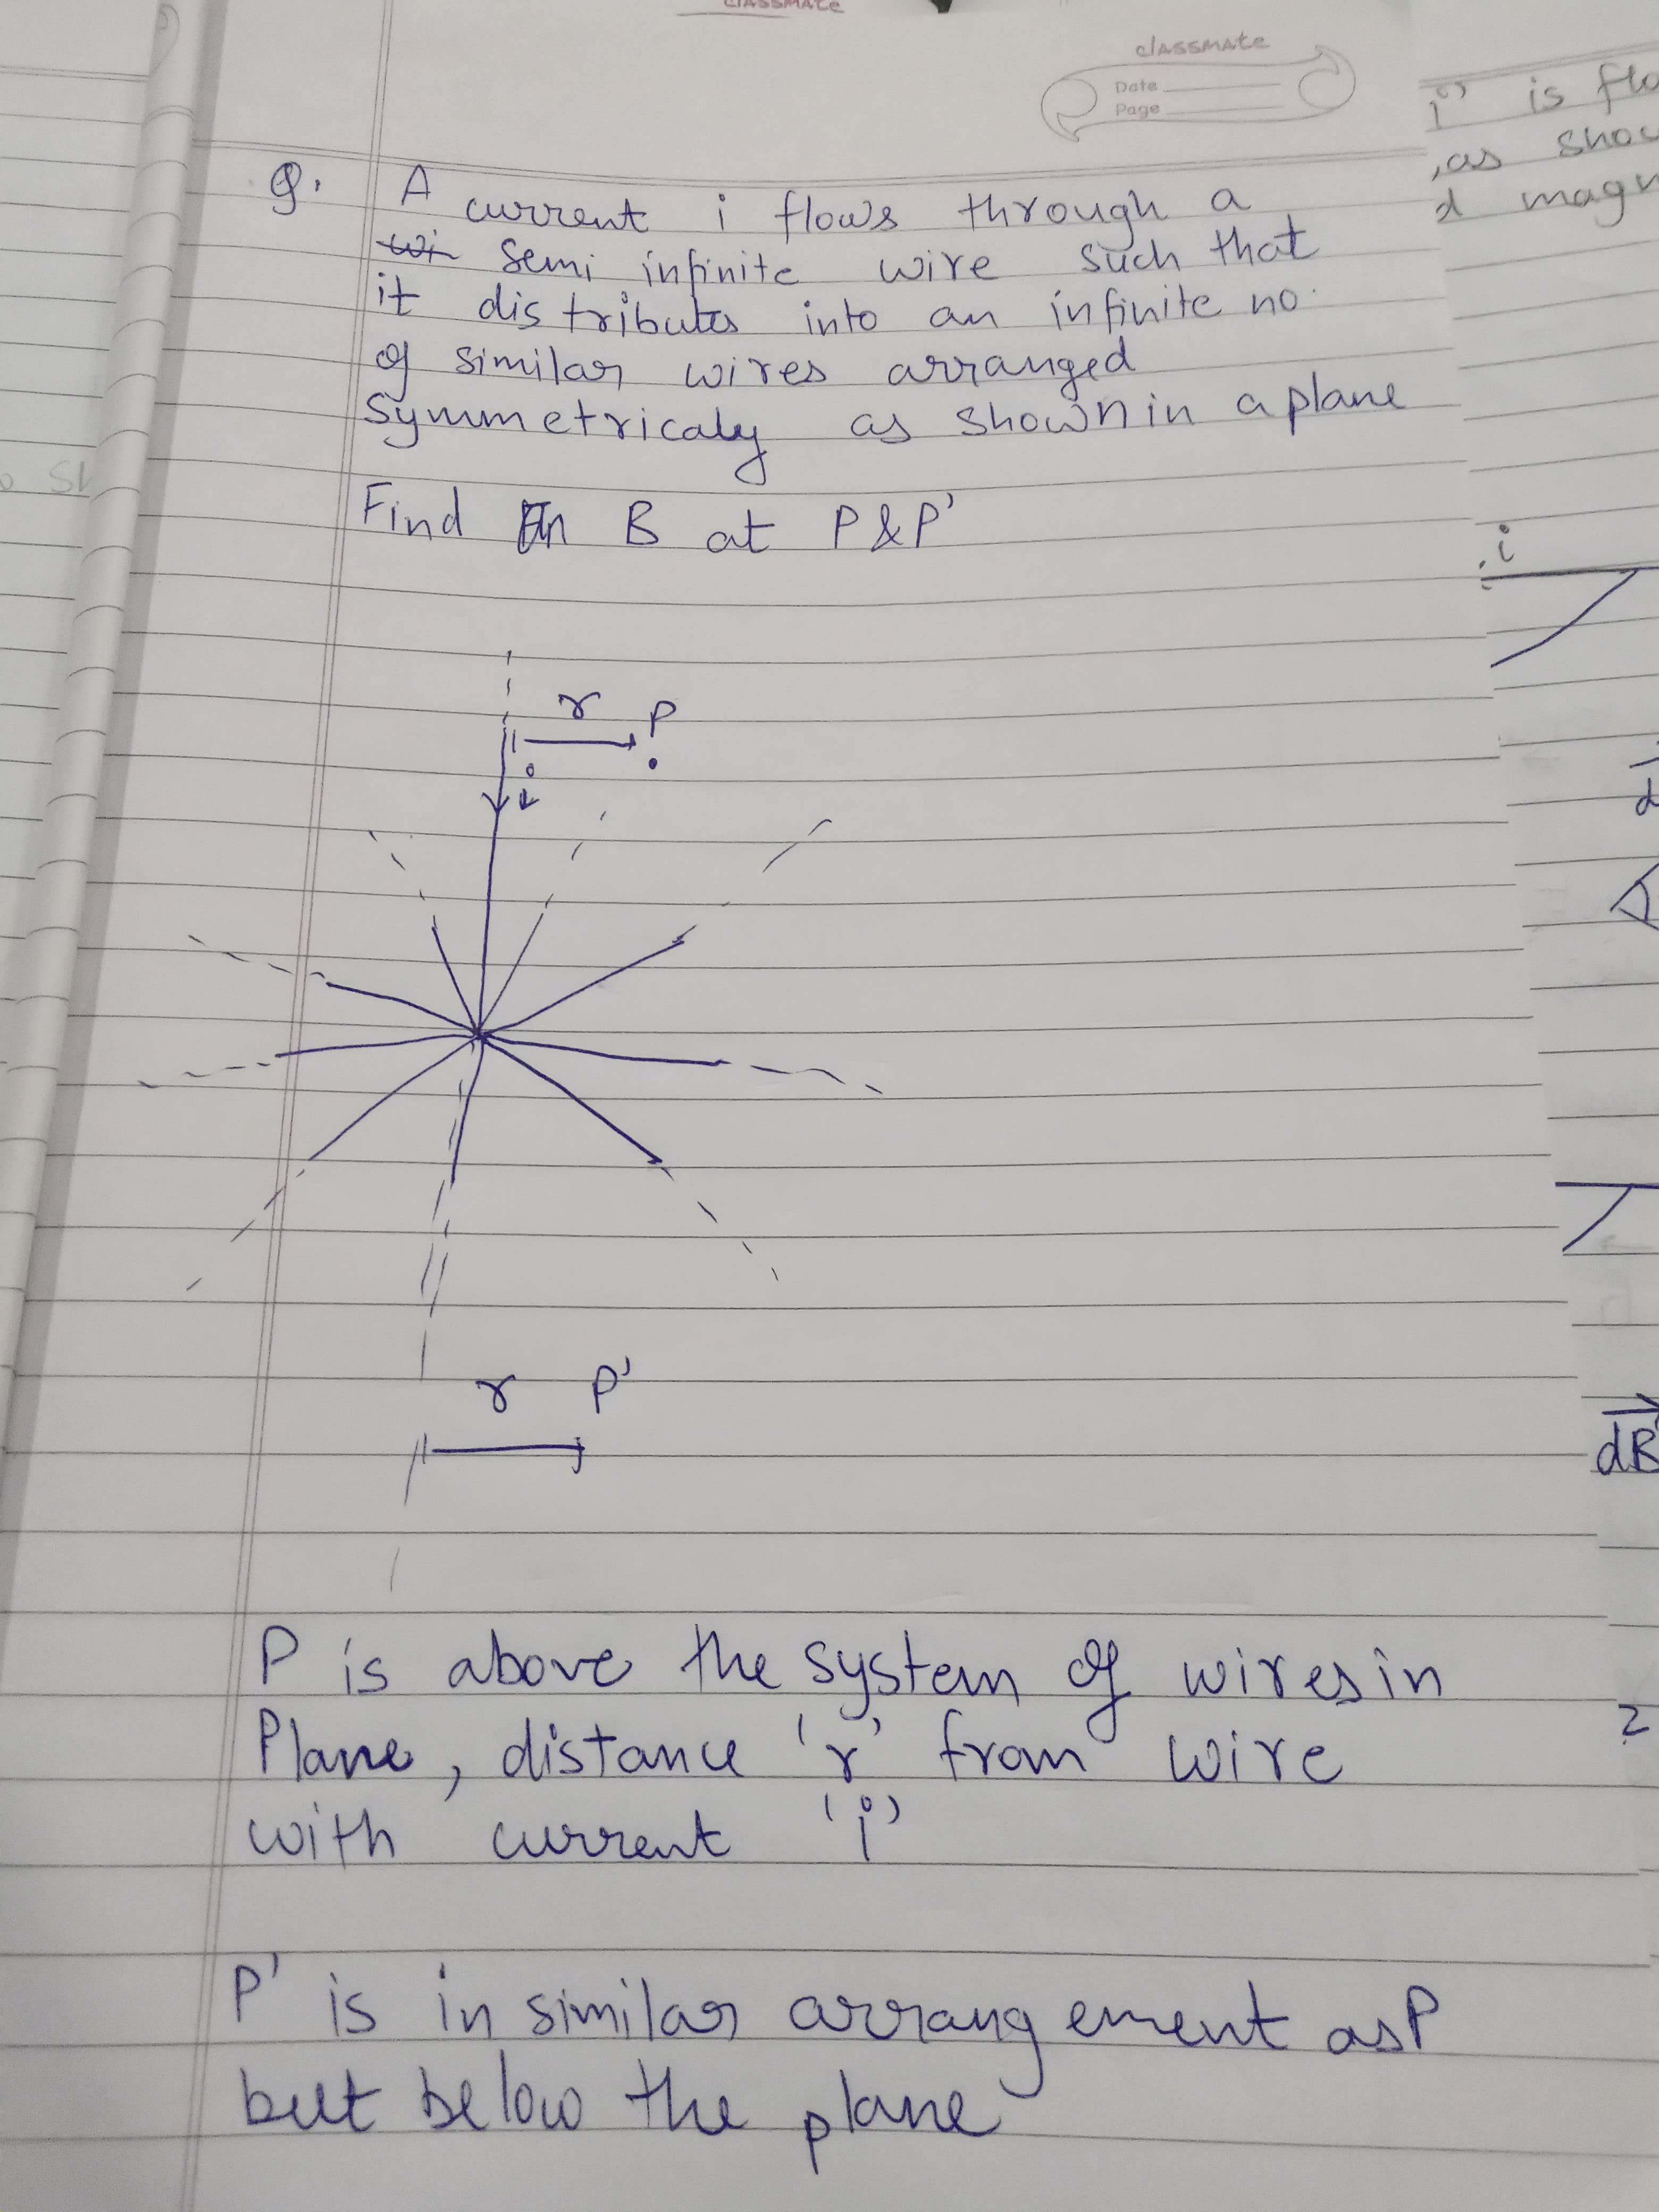 classmate
classmate
Date
Page
Q. A current i flows through a
semi infinite wire such that
it distributes into an infinite no.
of similar wires arranged
symmetricaly as shown in a plane
Find B at P & P'
r P
i
r P'
P is above the system of wires in
Plane, distance 'r' from wire
with current 'i'
P' is in similar arrangement as P
but below the plane
i" is flo
, as show
d magn
i
d
dB
2